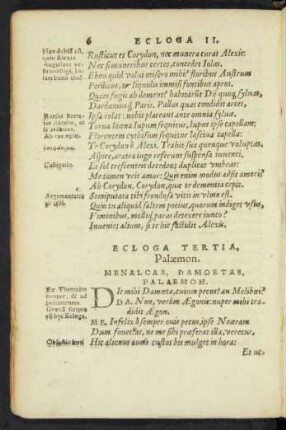 6 ECLOGA II.
Rusticus es Corydon, nec munera curat Alexis:
Nec si muneribus certes, concedet Iolas.
Eheu quid volui misero mihi? floribus Austrum
Perditus, & liquidis immisi fontibus apros.
Quem fugis ah demens? habitarunt Dij quoq; sylvas,
Dardaniusq; Paris. Pallas quas condidit arces,
Ipsa colat: nobis placeant ante omnia sylvæ.
Torva leæna lupum sequitur, lupus ipse capellam;
Florentem cytisum sequitur lasciva capella:
Te Corydon ô Alexi. Trahit sua quemque voluptas.
Aspice, aratra iugo referunt suspensa iuvenci,
Et sol crescenteis decedens duplicat vmbras:
Me tamen vrit amor: Quis enim modus adsit amori?
Ah Corydon, Corydon, quæ te dementia cepit.
Semiputata tibi frondosa vitis in vlmo est.
Quin tu aliquid saltem potius, quorum indiget vsus,
Viminibus, molliq; paras detexere iunco?
Invenies alium, si te hic fastidit Alexis.
ECLOGA TERTIA,
Palæmon.
MENALCAS, DAMOETAS,
PALAEMON.
Dic mihi Damœta, cuium pecus? an Melibœi?
DA. Non, verùm Ægonis: nuper mihi tra-
didit Ægon.
ME. Infelix ô semper ouis pecus, ipse Neæram
Dum fouet: ac, ne me sibi præferat illa, veretur,
Hic alienus oueis custos bis mulget in hora:
Et suc-